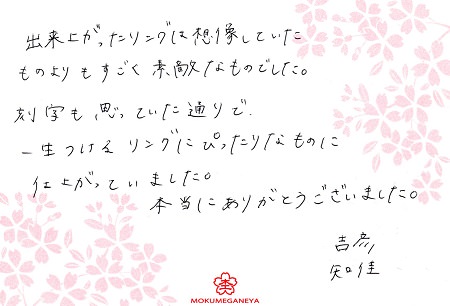 出来上がったリングは想像していた
ものよりもすごく素敵なものでした。
刻字も思っていた通りで
一生つけるリングにぴったりなものに
仕上がっていました。
本当にありがとうございました。
吉彦
知佳
MOKUMEGANEYA